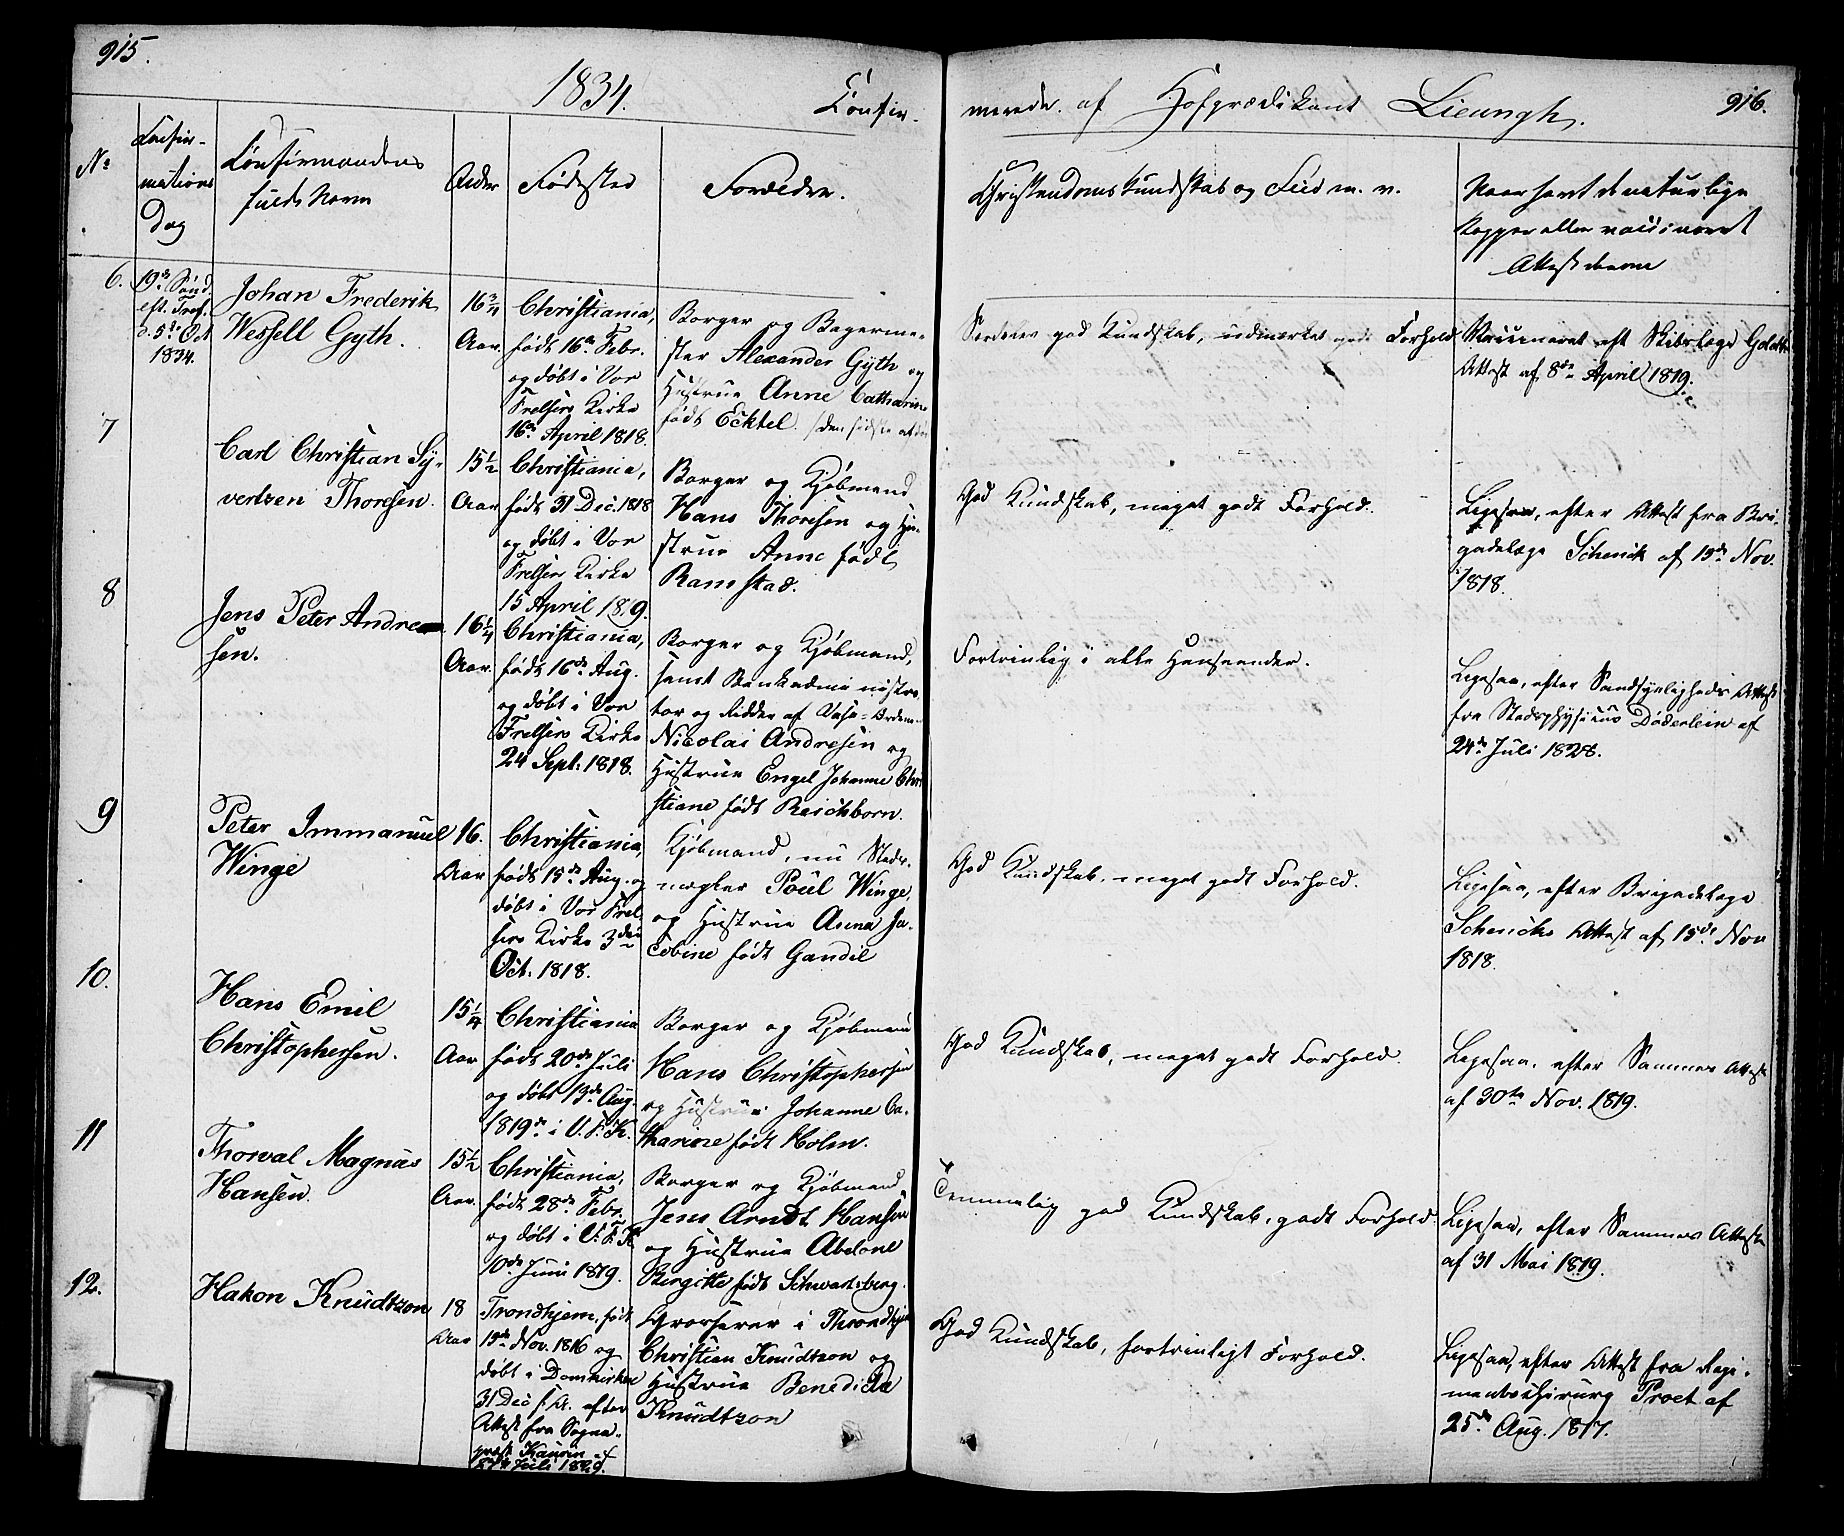 915.
1834.
Confir-
merede af Hofprædikant Lieungh.
916.
No
Confir-
mations
Dag
Confirmandens
fulde Navn
Alder
Fødested
Forældre.
Christendomskundskab og Flid m. v.
Naar havt de naturlige
Kopper eller vaccineret
Attest derom
6.
19de Sønd.
eft. Tref.
d. 5te Oct
1834.
Johan Frederik
Wessell Gyth.
16 3/4
Aar.
Christiania,
født 16de Febr.
og døbt i Vor
Frelsers Kirke
16de April 1818.
Borger og Bagerme-
ster Alexander Gyth og
Hustrue Anne Catharine
født Ecktel.
Særdeles god Kundskab, udmærket godt Forhold
Vaccineret eft Skibslæge
Attest af 8de April 1819.
7
Carl Christian Sy-
vertzen Thoresen.
15 1/2
Aar
Christiania,
født 31 Dec. 1818
og døbt i Vor
Frelsers Kirke
15 April 1819.
Borger og Kjøbmand
Hans Thoresen og Hu-
strue Anne født
Ramstad.
God Kundskab, meget godt Forhold.
Ligesaa, efter Attest fra Bri-
gadelæge Schenck af 15de Nov.
1818.
8
Jens Peter Andre
sen.
16 1/4
Aar.
Christiania,
født 16de Aug.
og døbt i Vor
Frelsers Kirke
24 Sept: 1818.
Borger og Kjøbmand,
samt Bankadministra-
tor og Ridder af Vasa-Ordenen
Nicolai Andresen og
Hustrue Engel Johanne Chri
stiane født Reichborn.
Fortrinlig i alle Henseender.
Ligesaa, efter Sandsynligheds Attest
fra Stadsphysicus Døderlein af
24de Juli 1828.
9
Peter Immanuel
Winge
16.
Aar
Christiania,
født 15de Aug. og
døbt i Vor Frel
sers Kirke 3die
Oct. 1818.
Kjøbmand, nu Stads-
mægler Poul Winge,
og Hustrue Anna Ja-
cobine født Gandil
God Kundskab, meget godt Forhold.
Ligesaa, efter Brigadelæge
Schencks Attest af 15de Nov
1818.
10.
Hans Emil
Christophersen.
15 1/4
Aar
Christiania
født 20de Juli
og døbt 13de Aug.
1819 i V. F. K.
Borger og Kjøbmand
Hans Christophersen
og Hustrue Johanne Ca-
tharine født Holm.
God Kundskab, meget godt Forhold
Ligesaa, efter Sammes Attest
af 30te Nov. 1819.
11
Thorval Magnus
Hansen.
15 1/2
Aar.
Christiania,
født 28de Febr.
og døbt i V. F. K
10de Juni 1819.
Borger og Kjøbmand
Jens Arndt Hansen
og Hustrue Abelone
Birgitte født Schwartsberg.
Temmelig god Kundskab, godt Forhold.
Ligesaa, efter Sammes Attest
af 31 Mai 1819.
12.
Hakon Knudtzon
18
Aar
Trondhjem, født
19de Nov. 1816 og
døbt i Domkirken
31 Dec s. A. efter
Attest fra Sogne-
præst Kaurin af
Juli 1829.
Grosserer i Throndhjem
Christian Knudtzon og
Hustrue Benedicte
Knudtzon
God Kundskab, fortrinligt Forhold.
Ligesaa, efter Attest fra Regi-
mentschirurg Proet af
25de Aug. 1817.